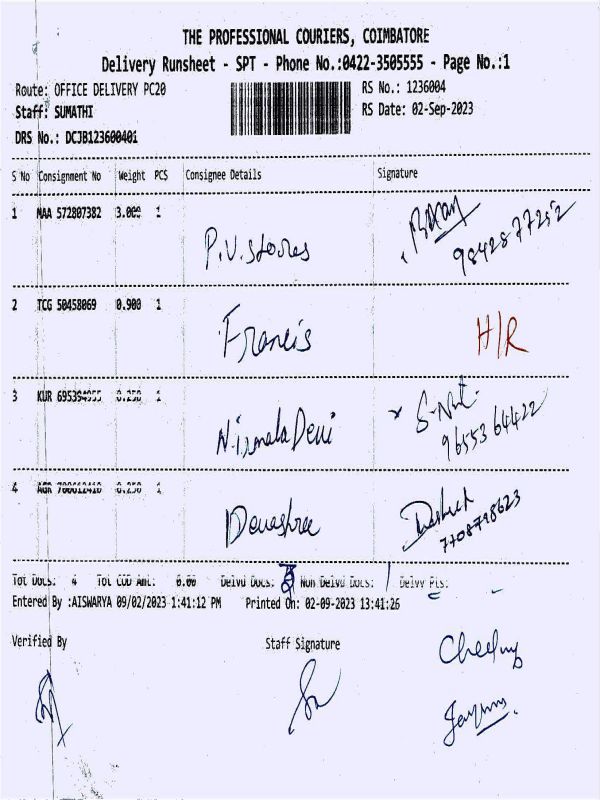 THE PROFESSIONAL COURIERS, COIMBATORE
Delivery Runsheet - SPT - Phone No.:0422-3505555 - Page No.:1
Route: OFFICE DELIVERY PC20 RS No.: 1236004
Staff: SUMATHI RS Date: 02-Sep-2023
DRS No.: DCJB123600401
S No Consignment No Weight PCS Consignee Details Signature
1 MAA 572807382 3.000 1 P.V. Stores 9842877252
2 TCG 50458069 0.900 1 Francis H/R
3 KUR 695394955 0.250 1 Nirmala Devi 9655364422
4 AGR 0.250 1 Devashree 7708798623
Tot Docs: 4 Tot COD Amt: 0.00 Delvd Docs: Non Delvd Docs: 1 Delvy Pts:
Entered By :AISWARYA 09/02/2023 1:41:12 PM Printed On: 02-09-2023 13:41:26
Verified By Staff Signature